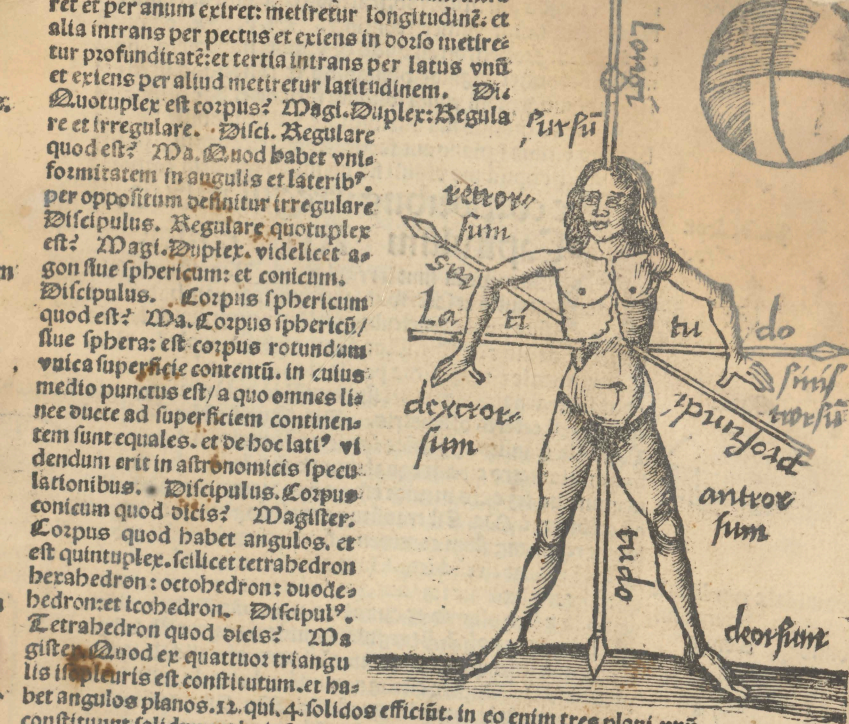 ret et per anum exiret: metiretur longitudinē. et
alia intrans per pectus et exiens in dorso metire-
tur profunditatē: et tertia intrans per latus vnū
et exiens per aliud metiretur latitudinem. Di.
Quotuplex est corpus? Magi. Duplex: Regula
re et irregulare. Disci. Regulare
quod est? Ma. Quod habet vni-
formitatem in angulis et laterib⁹.
per oppositum definitur irregulare
Discipulus. Regulare quotuplex
est? Magi. Duplex. videlicet a-
gon siue sphericum: et conicum.
Discipulus. Corpus sphericum
quod est? Ma. Corpus sphericū/
siue sphera: est corpus rotundum
vnica superficie contentū. in cuius
medio punctus est/ a quo omnes li-
nee ducte ad superficiem continen-
tem sunt equales. et de hoc lati⁹ vi
dendum erit in astronomicis specu
lationibus. Discipulus. Corpus
conicum quod dicis? Magister.
Corpus quod habet angulos. et
est quintuplex. scilicet tetrahedron
hexahedron: octohedron: duode-
hedron: et icohedron. Discipul⁹.
Tetrahedron quod dicis? Ma
gister. Quod ex quattuor triangu
lis isopleuris est constitutum. et ha-
bet angulos planos. 12. qui. 4. solidos efficiūt. in eo enim tres plani vnū
constituunt
Longi
sursū
retror-
sum
La
ti
tu
do
dextror-
sum
sinis
trorsū
profundi
antror
sum
tudo
deorsum